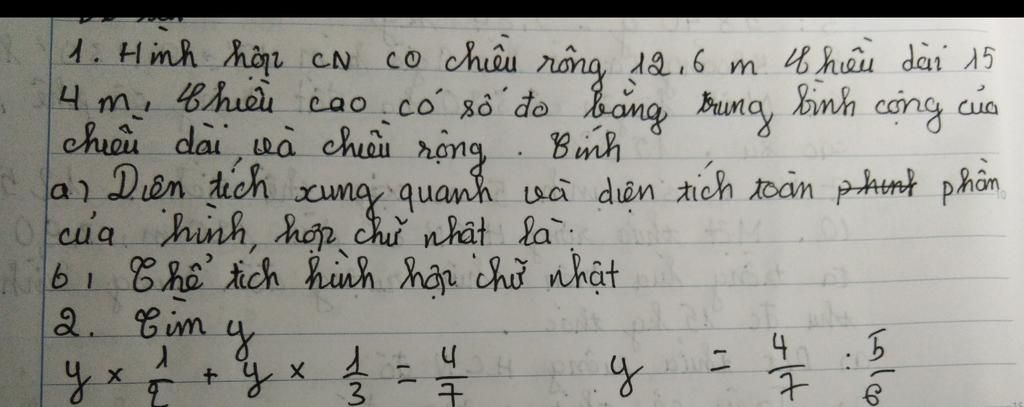 1. Hình hộp CN có chiều rộng 12,6 m Chiều dài 15
4 m, Chiều cao có số đo bằng trung bình cộng của
chiều dài và chiều rộng. Tính
a) Diện tích xung quanh và diện tích toàn phần
của hình hộp chữ nhật là:
b, Thể tích hình hộp chữ nhật
2. Tìm y
y × 1/2 + y × 1/3 = 4/7 y = 4/7 : 5/6